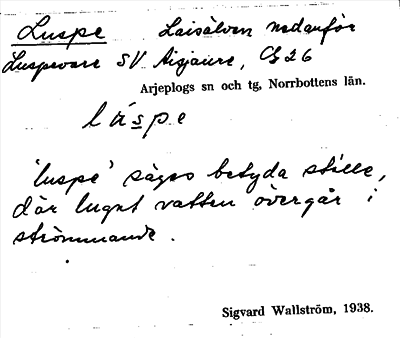 Luspe Laisälven nedanför
Luspevare SV Aisjaure, C326
Arjeplogs sn och tg, Norrbottens län.
lúspe
'luspe' säges betyda ställe,
där lugnt vatten övergår i
strömmande.
Sigvard Wallström, 1938.